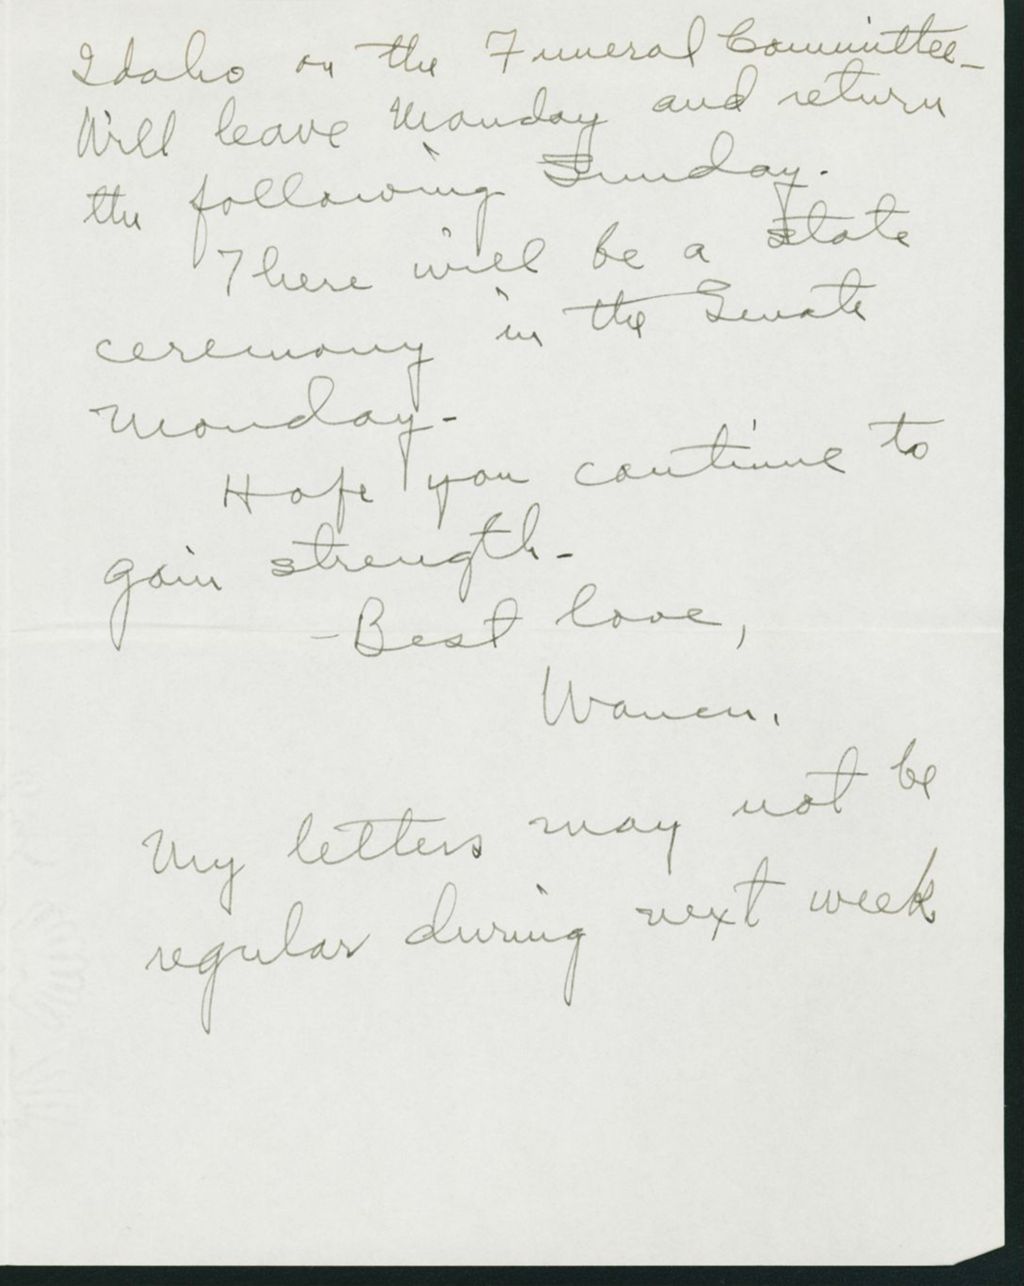 Idaho on the Funeral Committee-
Will leave Monday and return
the following Sunday.
There will be a state
ceremony in the Senate
Monday-
Hope you continue to
gain strength-
-Best love,
Warren.
My letters may not be
regular during next week